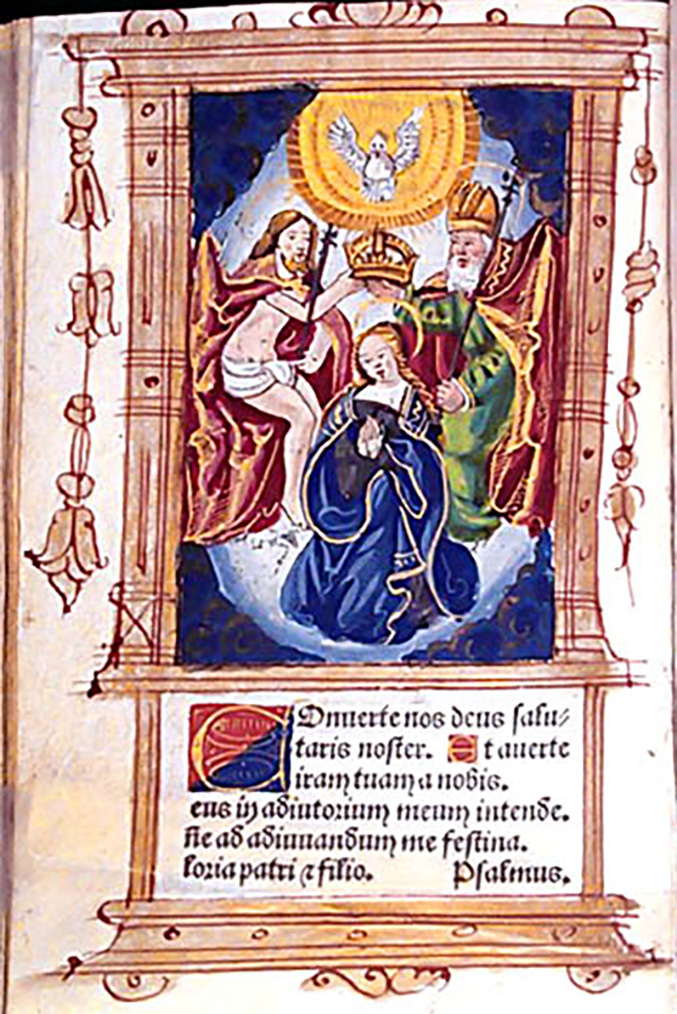 COnuerte nos deus salu⸗
taris noster. Et auerte
iram tuam a nobis.
eus in adiutorium meum intende.
ne ad adiuuandum me festina.
loria patri ⁊ filio. Psalmus.